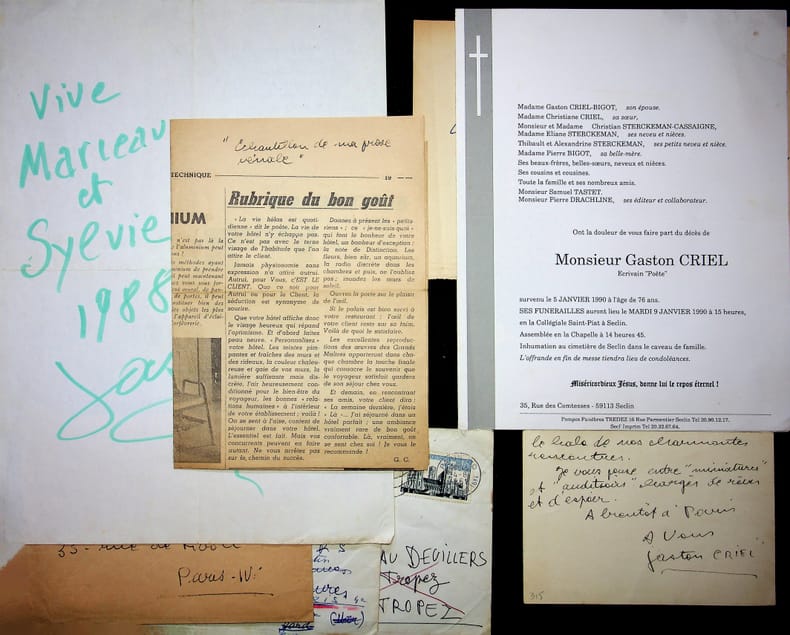 Vive
Marceau
et
Sylvie
1988
" Echantillon de ma prose
vénale "
TECHNIQUE
19
Rubrique du bon goût
IUM
« La vie hélas est quoti-
dienne » dit le poète. La vie de
votre hôtel n'y échappe pas.
Ce n'est pas avec le terne
visage de l'habitude que l'on
attire le client.
Jamais physionomie sans
expression n'a attiré autrui.
Autrui, pour Vous, C'EST LE
CLIENT. Que ce soit pour
Autrui ou pour le Client, la
séduction est synonyme de
sourire.
Que votre hôtel affiche donc
le visage heureux qui répand
l'optimisme. Et d'abord faites
peau neuve. « Personnalisez »
votre hôtel. Les teintes pim-
pantes et fraîches des murs et
des rideaux, la couleur chaleu-
reuse et gaie de vos murs, la
lumière suffisante mais dis-
crète, l'air heureusement con-
ditionné pour le bien-être du
voyageur, les bonnes « rela-
tions humaines » à l'intérieur
de votre établissement ; voilà !
On se sent à l'aise, content de
séjourner dans votre hôtel.
L'essentiel est fait. Mais vos
concurrents peuvent en faire
autant. Ne vous arrêtez pas
sur le chemin du succès.
Donnez à présent les « petits
riens » ; ce « je-ne-sais-quoi »
qui font le bonheur de votre
hôtel, un bonheur d'exception :
la note de Distinction. Les
fleurs, bien sûr, un aquarium,
la radio discrète dans les
chambres et puis, ne l'oubliez
pas ; inondez les murs de
soleil.
Ouvrez la porte sur le plaisir
de l'œil.
Si le palais est bien servi à
votre restaurant : l'œil de
votre client reste sur sa faim.
Voilà de quoi le satisfaire.
Les excellentes reproduc-
tions des œuvres des Grands
Maîtres apporteront dans cha-
que chambre la touche finale
qui consacre le souvenir que
le voyageur satisfait gardera
de son séjour chez vous.
Et demain, en rencontrant
ses amis, votre client dira :
« La semaine dernière, j'étais
Là »... J'ai séjourné dans un
hôtel parfait ; une ambiance
vraiment rare de bon goût
confortable. Là, vraiment, on
se sent chez soi ! Je vous le
recommande !
G. C.
Madame Gaston CRIEL-BIGOT, son épouse.
Madame Christiane CRIEL, sa sœur,
Monsieur et Madame Christian STERCKEMAN-CASSAIGNE,
Madame Eliane STERCKEMAN, ses neveu et nièces.
Thibault et Alexandrine STERCKEMAN, ses petits neveu et nièce.
Madame Pierre BIGOT, sa belle-mère.
Ses beaux-frères, belles-sœurs, neveux et nièces.
Ses cousins et cousines.
Toute la famille et ses nombreux amis.
Monsieur Samuel TASTET.
Monsieur Pierre DRACHLINE, ses éditeur et collaborateur.
Ont la douleur de vous faire part du décès de
Monsieur Gaston CRIEL
Ecrivain "Poète"
survenu le 5 JANVIER 1990 à l'âge de 76 ans.
SES FUNERAILLES auront lieu le MARDI 9 JANVIER 1990 à 15 heures,
en la Collégiale Saint-Piat à Seclin.
Assemblée en la Chapelle à 14 heures 45.
Inhumation au cimetière de Seclin dans le caveau de famille.
L'offrande en fin de messe tiendra lieu de condoléances.
Miséricordieux Jésus, donne lui le repos éternel !
35, Rue des Comtesses - 59113 Seclin
Pompes Funèbres TREDEZ 16 Rue Parmentier Seclin Tel 20.90.12.17.
Serf Imprim Tel 20.32.67.64.
le halo de nos charmantes
rencontres.
Je vous pense entre "miniatures"
et "auditoriums" chargés de rêves
et d'espoir.
A bientôt à Paris
A Vous
Gaston CRIEL
315
33 - rue de
Paris - IVe
AU DEVILLERS
Tropez
TROPEZ